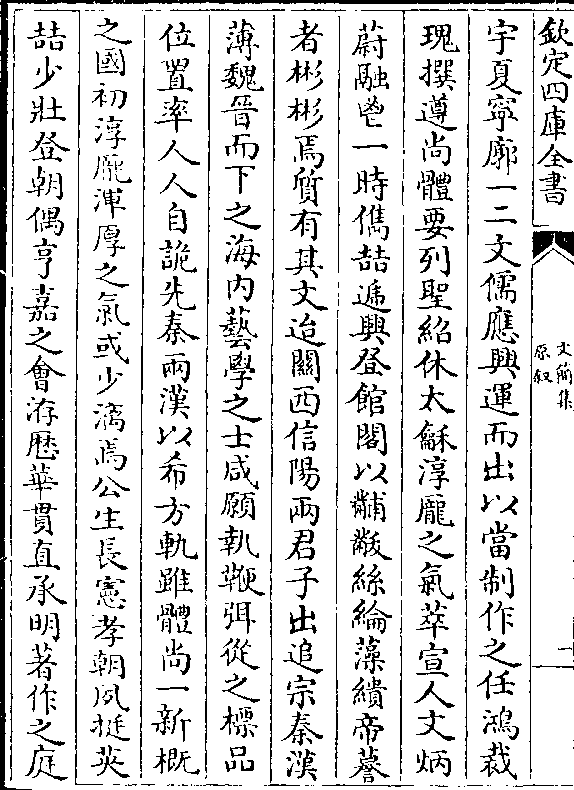 欽定四庫全書
文簡集
原叙
一
宇夏寧廓一二文儒應興運而出以當制作之任鴻裁
瑰撰遵尚體要列聖紹休太龢淳龎之氣萃宣人文炳
蔚融鬯一時儁喆遞興登館閣以黼黻絲綸藻繢帝謩
者彬彬焉質有其文迨關西信陽兩君子出追宗秦漢
薄魏晉而下之海内藝學之士咸願執鞭弭從之標品
位置率人人自詭先秦兩漢以希方軌雖體尚一新概
之國初淳龎渾厚之氣或少漓焉公生長憲孝朝夙挺英
喆少壯登朝偶亨嘉之會洊歷華貫直承明著作之庭